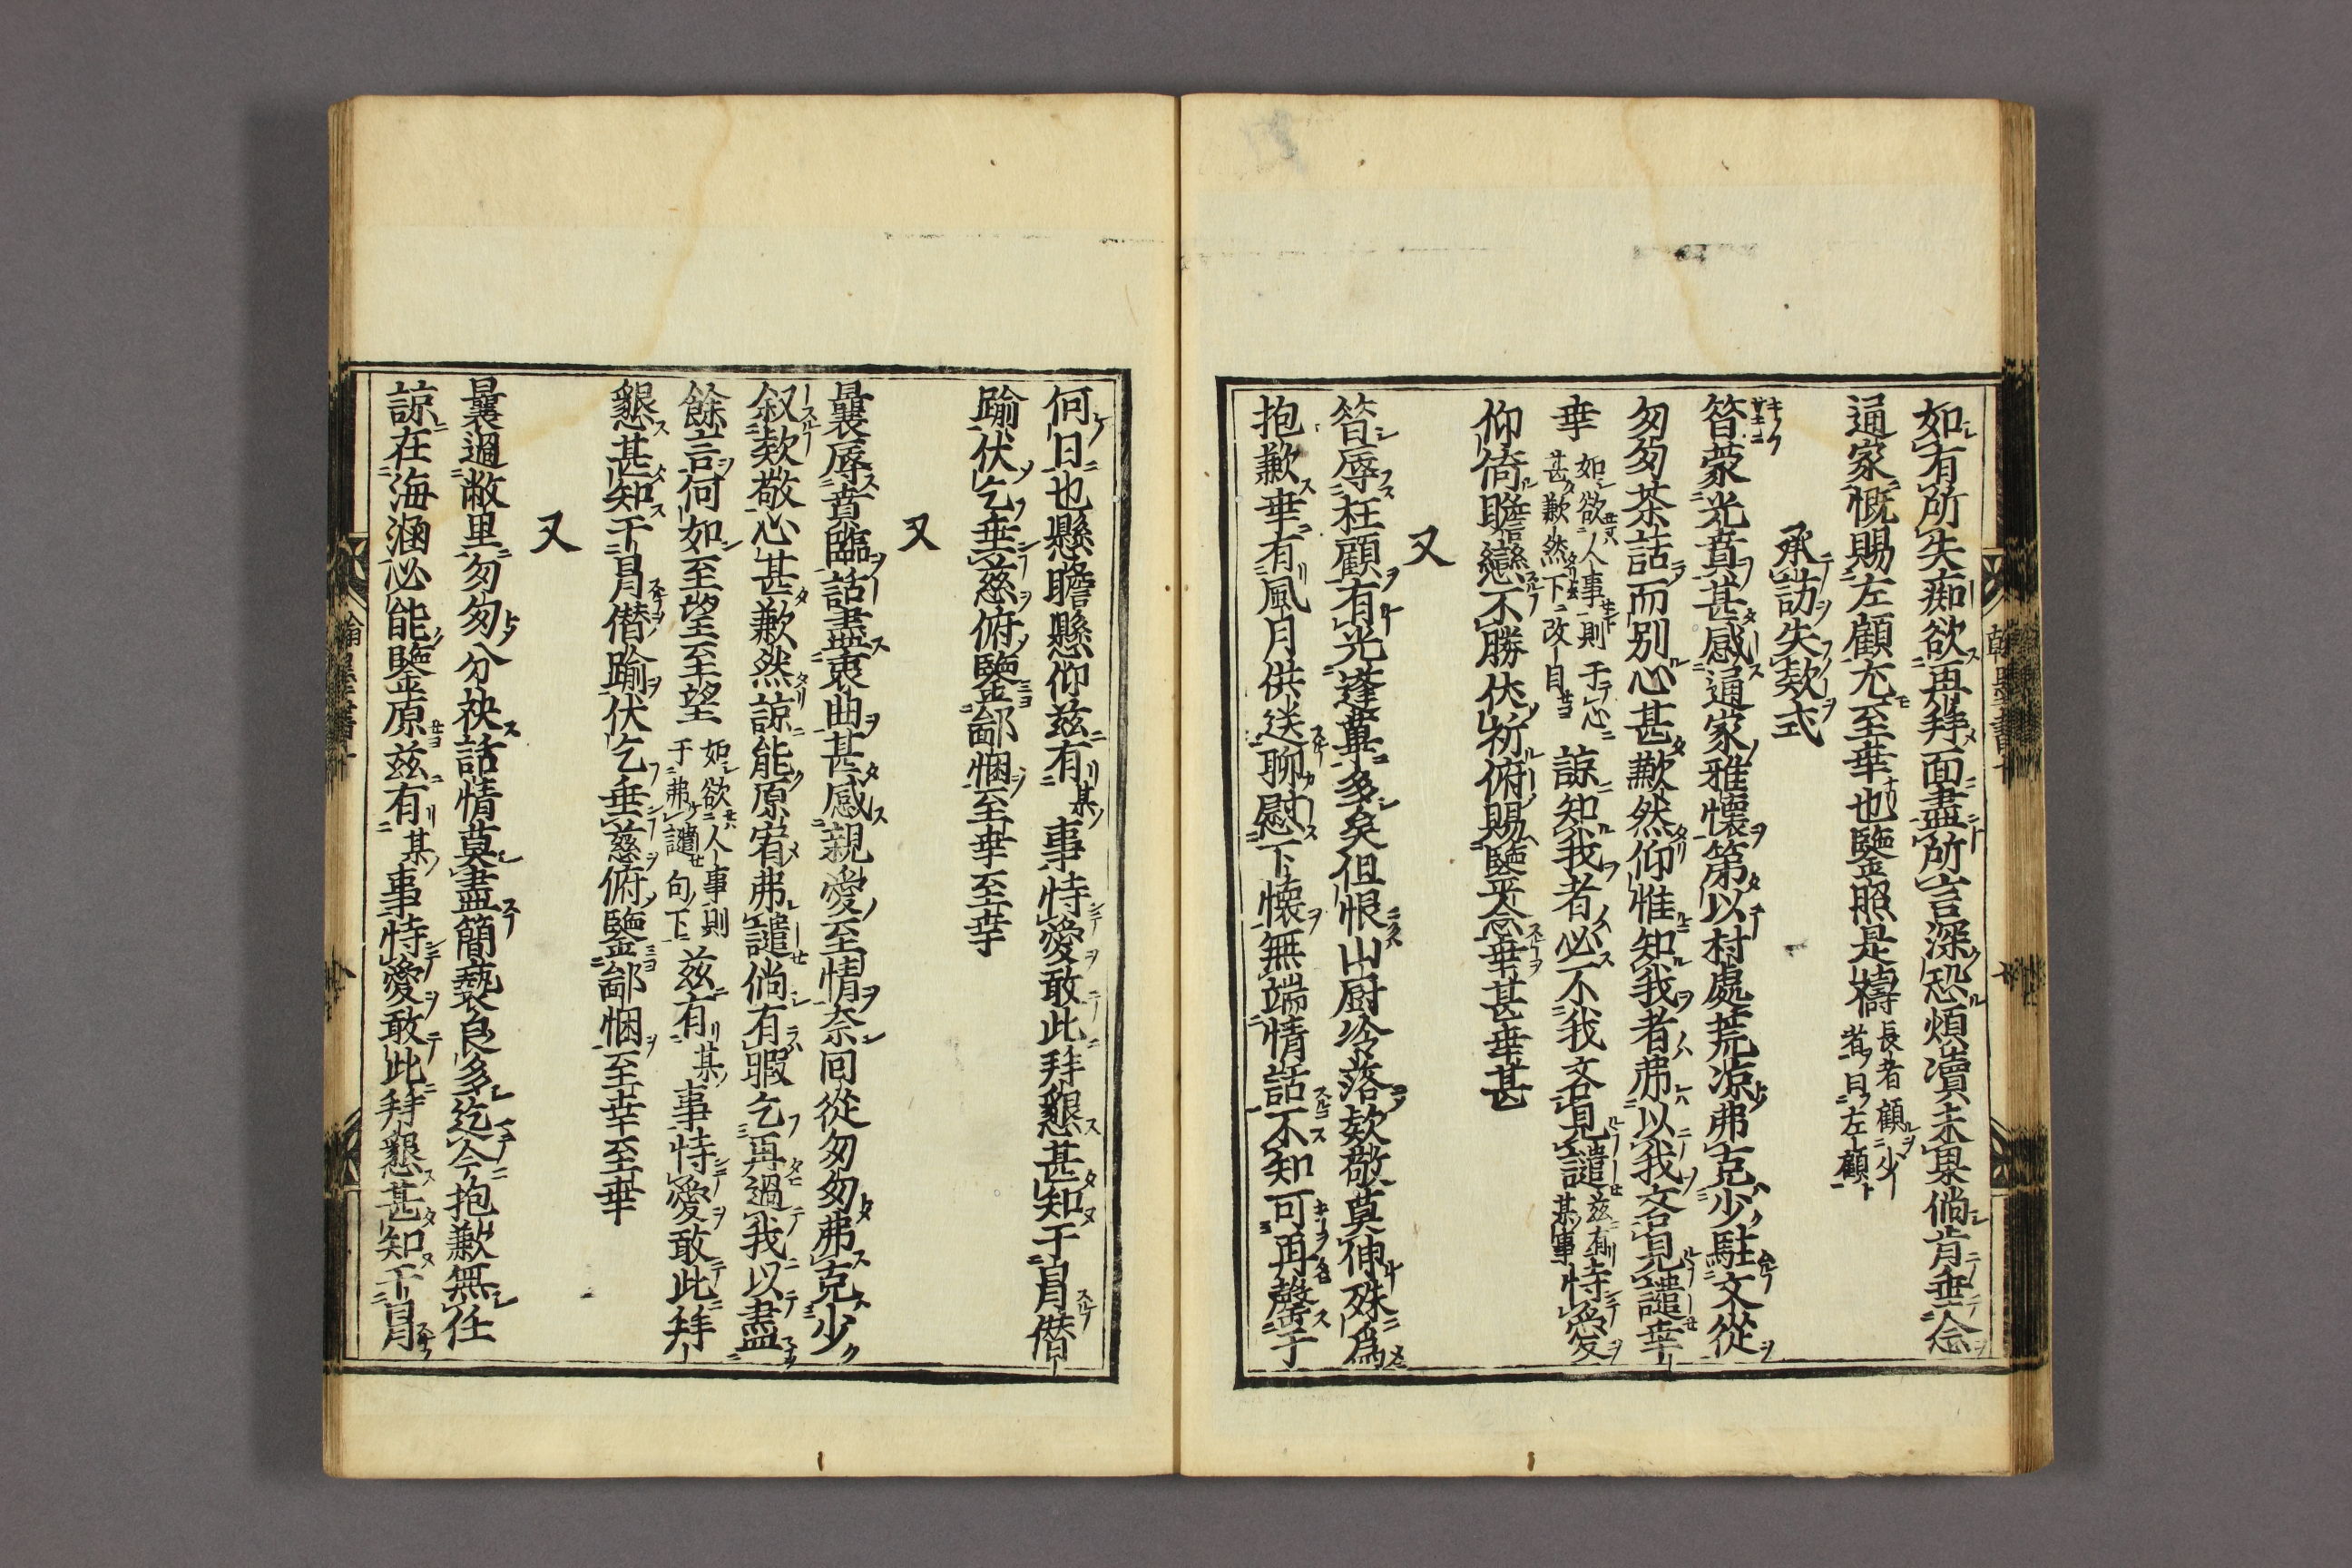 如有所失痴欲再拜面盡所言深恐煩瀆未果倘肯垂念
通家慨賜左顧尤至幸也鑒照是禱長者顧少
者曰左顧
承訪失欵式
昝蒙光賁甚感通家雅懷第以村處荒凉弗克少駐文從
匆匆茶話而別心甚歉然仰惟知我者弗以我文君見譴幸
幸如欲人事則于心
甚歉然下改自諒知我者必不我文君見譴茲有
某事恃愛
仰倚瞻戀不勝伏祈俯賜鑒念幸甚幸甚
又
昝辱枉顧有光蓬蓽多矣但恨山厨冷落欵敬莫伸殊為
抱歉幸有風月供送聊慰下懷無端情話不知可再罄于
何日也懸瞻懸仰茲有某事恃愛敢此拜懇甚知干冒僭
踰伏乞垂慈俯鑒鄙悃至幸至幸
又
曩辱賁臨話盡衷曲甚感親愛至情奈回從匆匆弗克少
叙欵敬心甚歉然諒能原宥弗譴倘有暇乞再過我以盡
餘言何如至望至望如欲人事則
于弗譴句下茲有某事恃愛敢此拜
懇甚知干冒僭踰伏乞垂慈俯鑒鄙悃至幸至幸
又
曩過敝里匆匆分袂話情莫盡簡褻良多迄今抱歉無任
諒在海涵必能鑒原茲有某事恃愛敢此拜懇甚知干冒